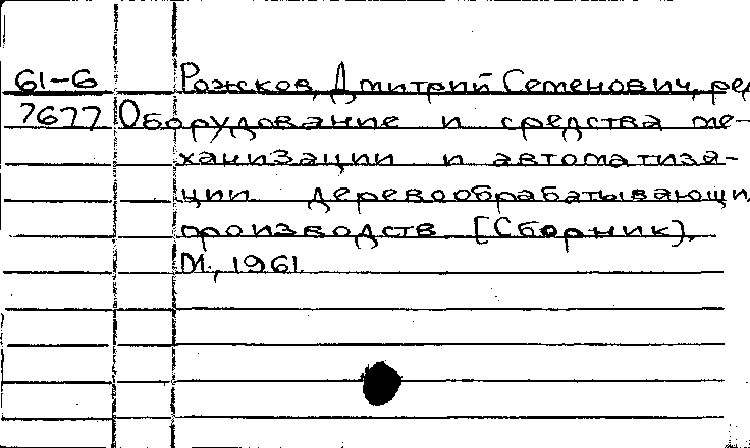 61-6 Рожков, Дмитрий Семенович, ред
7677 Оборудование и средства ме-
ханизации и автоматиза-
ции деревообрабатывающи
производств. [Сборник],
М., 1961.